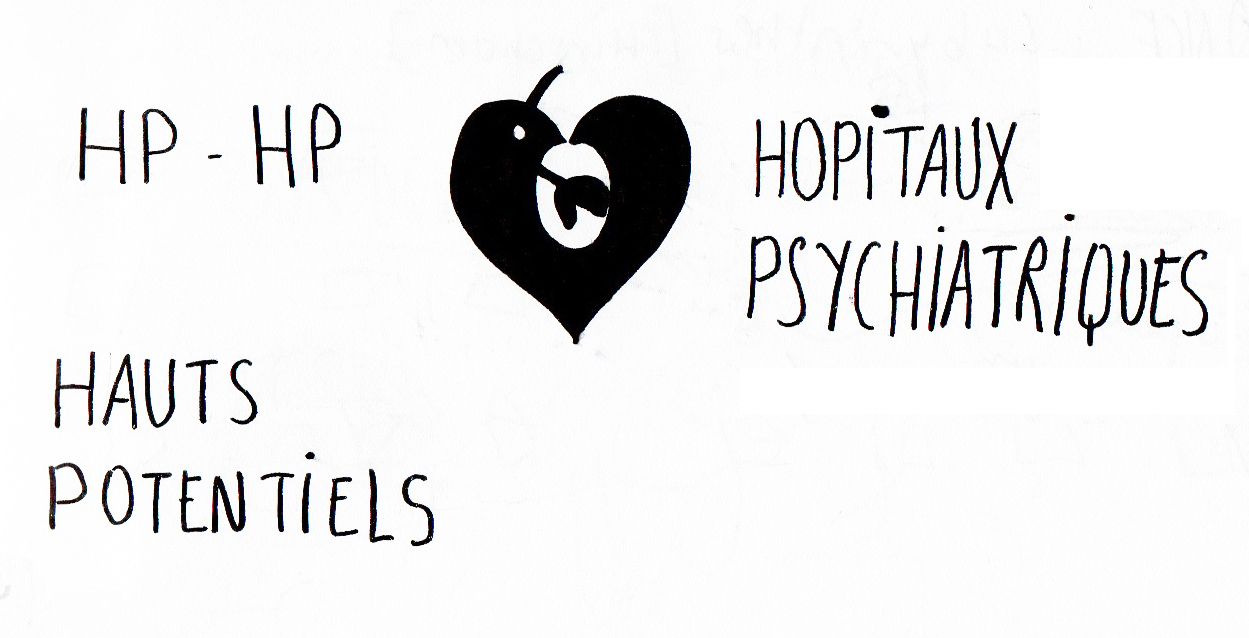 HP - HP
HOPiTAUX
PSYCHiATRiQUES
HAUTS
POTENTiELS